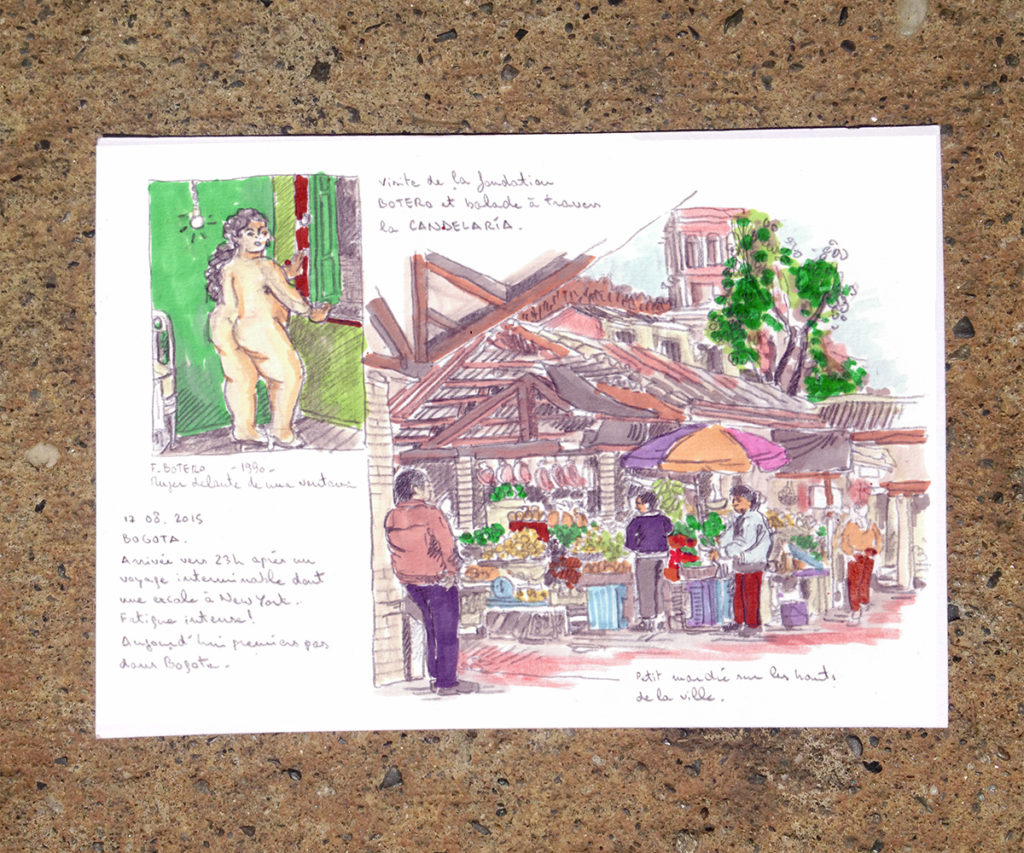 visite de la fondation
BOTERO et balade à travers
la CANDELARÍA.
F. BOTERO - 1990 -
Mujer delante de una ventana
12 08. 2015
BOGOTA.
Arrivée vers 23h après un
voyage interminable dont
une escale à New York.
Fatigue intense!
Aujourd'hui premiers pas
dans Bogota.
Petit marché sur les hauts
de la ville.